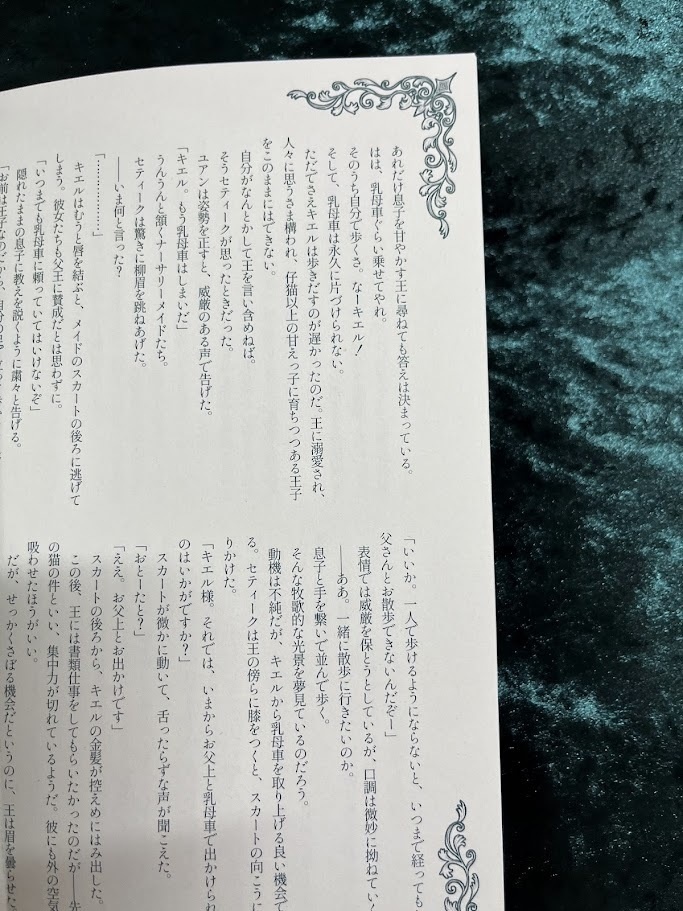 あれだけ息子を甘やかす王に尋ねても答えは決まっている。
はは、乳母車ぐらい乗せてやれ。
そのうち自分で歩くさ。なーキエル！
そして、乳母車は永久に片づけられない。
ただでさえキエルは歩きだすのが遅かったのだ。王に溺愛され、
人々に思うさま構われ、仔猫以上の甘えっ子に育ちつつある王子
をこのままにはできない。
自分がなんとかして王を言い含めねば。
そうセティークが思ったときだった。
ユアンは姿勢を正すと、威厳のある声で告げた。
「キエル。もう乳母車はしまいだ」
うんうんと頷くナーサリーメイドたち。
セティークは驚きに柳眉を跳ねあげた。
――いま何と言った？
「………………」
キエルはむうと唇を結ぶと、メイドのスカートの後ろに逃げて
しまう。彼女たちも父王に賛成だとは思わずに。
「いつまでも乳母車に頼っていてはいけないぞ」
隠れたままの息子に教えを説くように粛々と告げる。
「お前は王子なのだから、自分の
「いいか。一人で歩けるようにならないと、いつまで経っても
父さんとお散歩できないんだぞー」
表情では威厳を保とうとしているが、口調は微妙に拗ねてい
――ああ。一緒に散歩に行きたいのか。
息子と手を繋いで並んで歩く。
そんな牧歌的な光景を夢見ているのだろう。
動機は不純だが、キエルから乳母車を取り上げる良い機会で
る。セティークは王の傍らに膝をつくと、スカートの向こうに
りかけた。
「キエル様。それでは、いまからお父上と乳母車で出かけられ
のはいかがですか？」
スカートが微かに動いて、舌ったらずな声が聞こえた。
「おとーたと？」
「ええ。お父上とお出かけです」
スカートの後ろから、キエルの金髪が控えめにはみ出した。
この後、王には書類仕事をしてもらいたかったのだが――先
の猫の件といい、集中力が切れているようだ。彼にも外の空気
吸わせたほうがいい。
だが、せっかくさぼる機会だというのに、王は眉を曇らせた